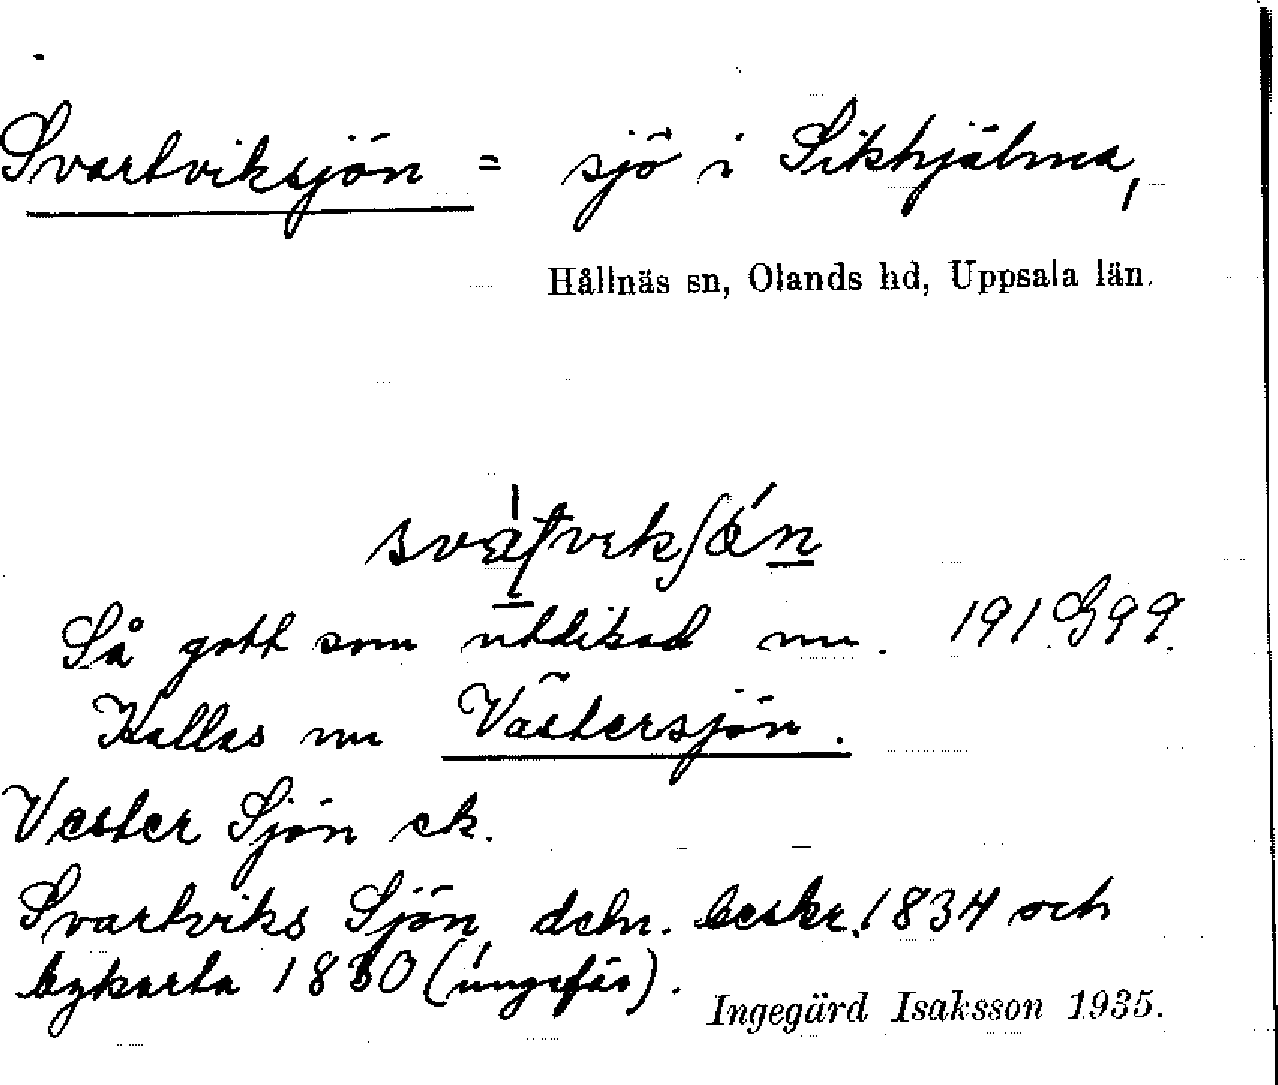 Svartviksjön = sjö i Sikhjälma,
Hållnäs sn, Olands hd, Uppsala län.
Så gott som utdikad nu. 191 G 99.
Kallas nu Västersjön.
Vester Sjön ek.
Svartviks Sjön, deln. beskr. 1834 och
bykarta 1830 (ungefär).
Ingegärd Isaksson 1935.